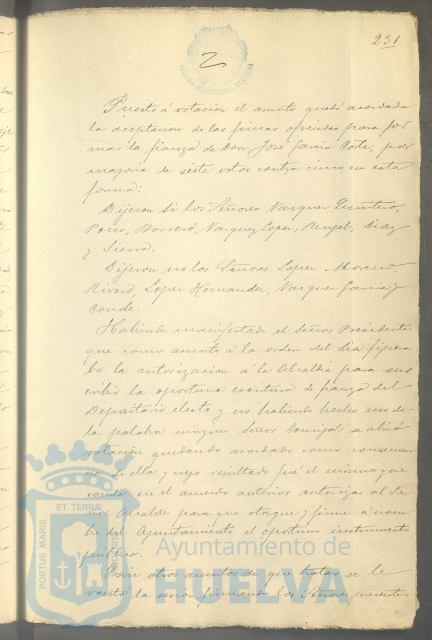 231
2
Puesto á votación el asunto quedó acordada
la aceptación de las fincas ofrecidas para for
mar la fianza de Don José García Corte, por
mayoría de siete votos contra cinco en esta
forma:
Dijeron si los Señores Vazquez Quintero,
Pons, Borrero, Vazquez Lopez, Rengel, Diaz
y Sierra.
Dijeron no los Señores Lopez Moreno,
Rivero, Lopez Hernandez, Vazquez García y
Conde.
Habiendo manifestado el Señor Presidente
que como asunto á la orden del dia figura
ba la autorización á la Alcaldía para sus
cribir la oportuna escritura de fianza del
Depositario electo y no habiendo hecho uso de
la palabra ningun Señor Concejal se abrió
votación quedando acordado como consecuen
cia de ella y cuyo resultado fué el mismo que
consta en el acuerdo anterior autorizar al Se
ñor Alcalde para que otorgue y firme á nom
bre del Ayuntamiento el oportuno instrumento
público.
Sin otros asuntos de que tratar se le
vantó la sesión firmando los Señores presentes
ET TERRE
PORTUS MARIS
Ayuntamiento de
HUELVA